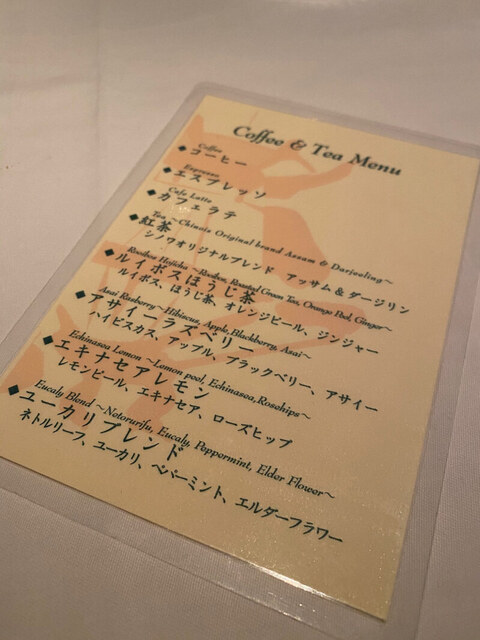 Coffee & Tea Menu
Coffee
◆コーヒー
Espresso
◆エスプレッソ
Cafe Latte
◆カフェラテ
Tea ~Chinois Original brand Assam & Darjeeling~
◆紅茶
シノワオリジナルブレンド アッサム＆ダージリン
Rooibos Hojicha ~Rooibos, Roasted Green Tea, Orange Peel, Ginger~
◆ルイボスほうじ茶
ルイボス、ほうじ茶、オレンジピール、ジンジャー
Asai Rasberry ~Hibiscus, Apple, Blackberry, Asai~
◆アサイーラズベリー
ハイビスカス、アップル、ブラックベリー、アサイー
Echinasea Lemon ~Lemon peel, Echinasea, Rosehips~
◆エキナセアレモン
レモンピール、エキナセア、ローズヒップ
Eucaly Blend ~Notorurifu, Eucaly, Peppermint, Elder Flower~
◆ユーカリブレンド
ネトルリーフ、ユーカリ、ペパーミント、エルダーフラワー